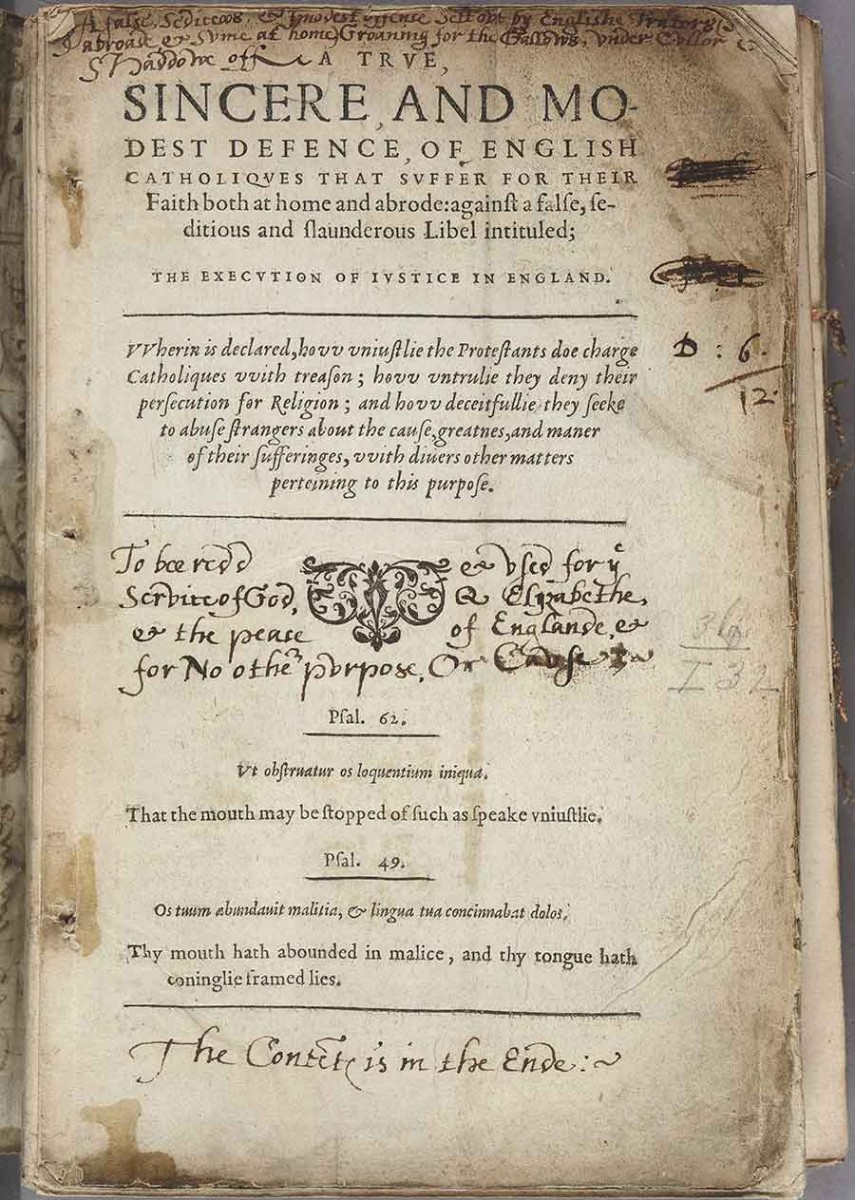 A false, Sediteos, & ymodest offence Set out by Englishe Trators
abroade & Sume at home, Groaning for the Gallows, under Collor
Shaddowe off A TRVE,
SINCERE, AND MO-
DEST DEFENCE, OF ENGLISH
CATHOLIQVES THAT SVFFER FOR THEIR
Faith both at home and abrode: againſt a falſe, ſe-
ditious and ſlaunderous Libel intituled;
THE EXECVTION OF IVSTICE IN ENGLAND.
VVherin is declared, hovv vniuſtlie the Proteſtants doe charge
Catholiques vvith treaſon; hovv vntrulie they deny their
perſecution for Religion; and hovv deceitfullie they ſeeke
to abuſe ſtrangers about the cauſe, greatnes, and maner
of their ſufferinges, vvith diuers other matters
perteining to this purpoſe.
D : 6.
12.
To bee redd & vsed for yͤ
Service of God, Q Elizabethe,
& the peace of Englande, &
for No other pvrpose, Or Cause
I 32
Pſal. 62.
Vt obſtruatur os loquentium iniqua.
That the mouth may be ſtopped of ſuch as ſpeake vniuſtlie.
Pſal. 49.
Os tuum abundauit malitia, & lingua tua concinnabat dolos.
Thy mouth hath abounded in malice, and thy tongue hath
coninglie framed lies.
The Contēt is in the Ende:~